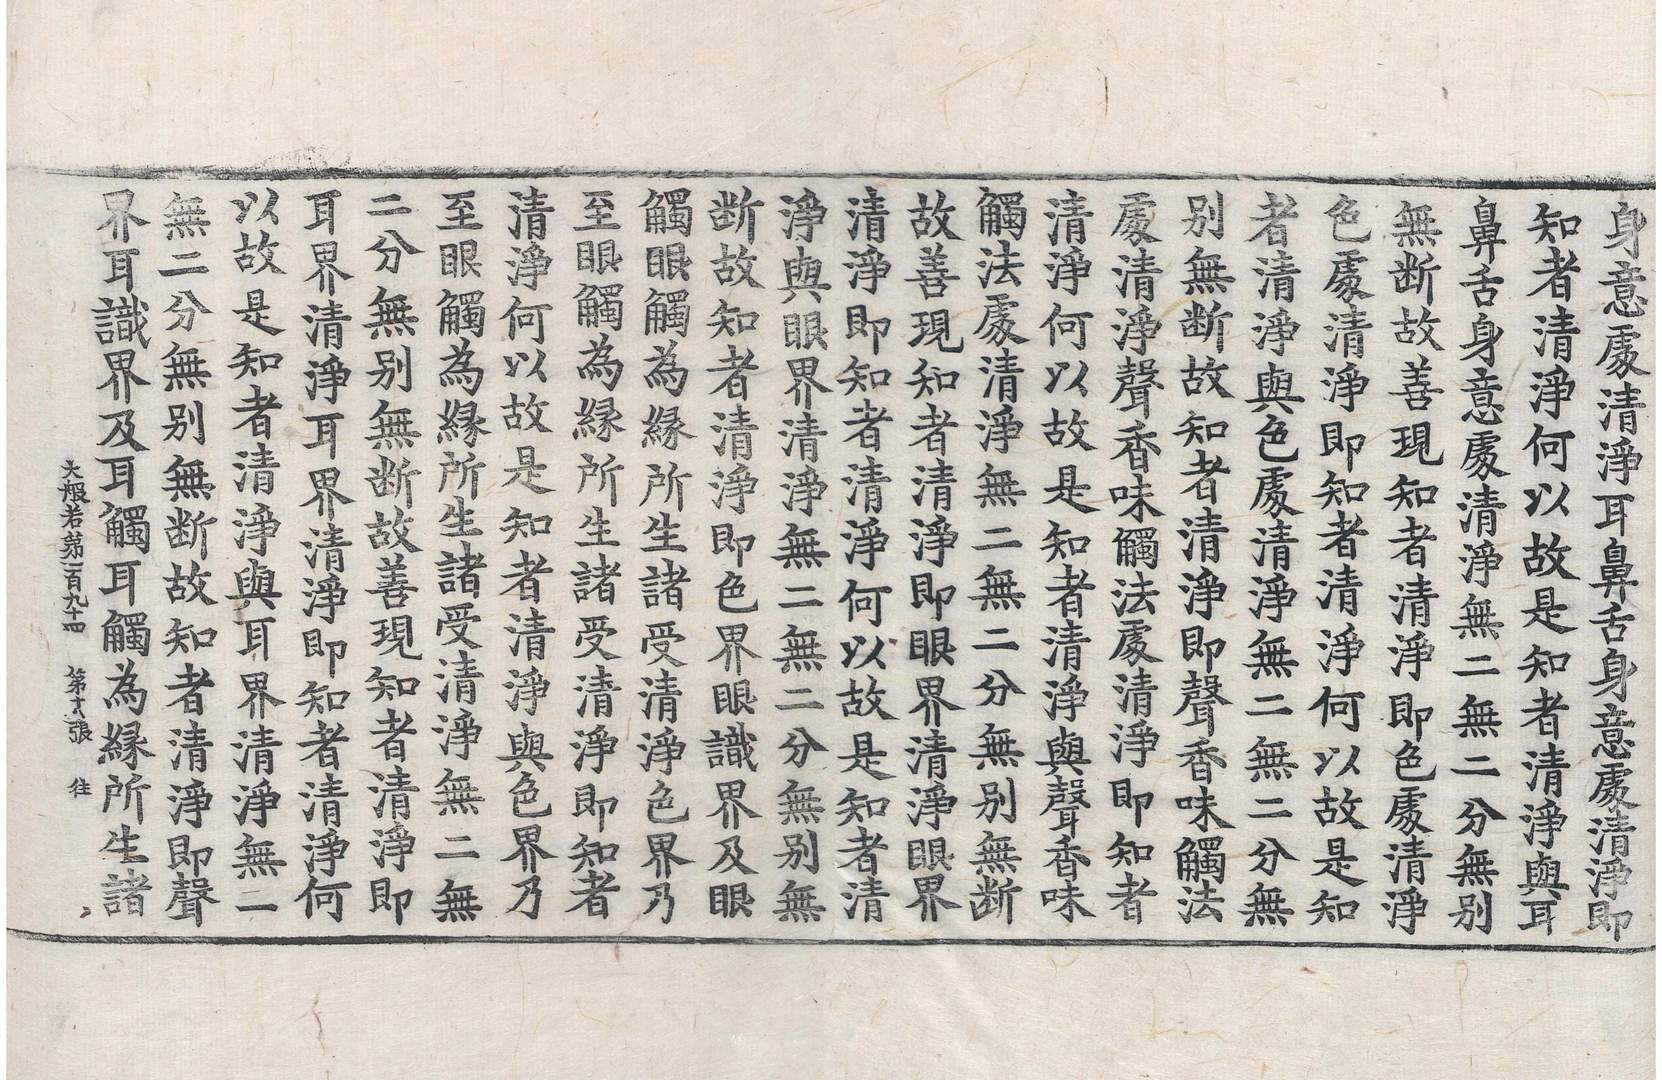 身意處清淨耳鼻舌身意處清淨即
知者清淨何以故是知者清淨與耳
鼻舌身意處清淨無二無二分無別
無断故善現知者清淨即色處清淨
色處清淨即知者清淨何以故是知
者清淨與色處清淨無二無二分無
別無断故知者清淨即聲香味觸法
處清淨聲香味觸法處清淨即知者
清淨何以故是知者清淨與聲香味
觸法處清淨無二無二分無別無断
故善現知者清淨即眼界清淨眼界
清淨即知者清淨何以故是知者清
淨與眼界清淨無二無二分無別無
断故知者清淨即色界眼識界及眼
觸眼觸為縁所生諸受清淨色界乃
至眼觸為縁所生諸受清淨即知者
清淨何以故是知者清淨與色界乃
至眼觸為縁所生諸受清淨無二無
二分無別無断故善現知者清淨即
耳界清淨耳界清淨即知者清淨何
以故是知者清淨與耳界清淨無二
無二分無別無断故知者清淨即聲
界耳識界及耳觸耳觸為縁所生諸
大般若第二百九十四 第十八張 往